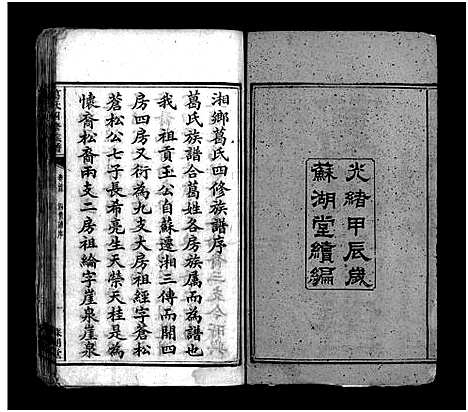 光緒甲辰歲
蘇湖堂續編
湘鄉葛氏四修族譜序
葛氏族譜合葛姓各房族屬而為譜也
我 祖貢玉公自蘇遷湘三傳而開四
房四房又衍為九支大房祖經字蒼松
蒼松公七子長希亮生天榮天桂是為
懷裔松裔兩支二房祖綸字崖泉崖泉